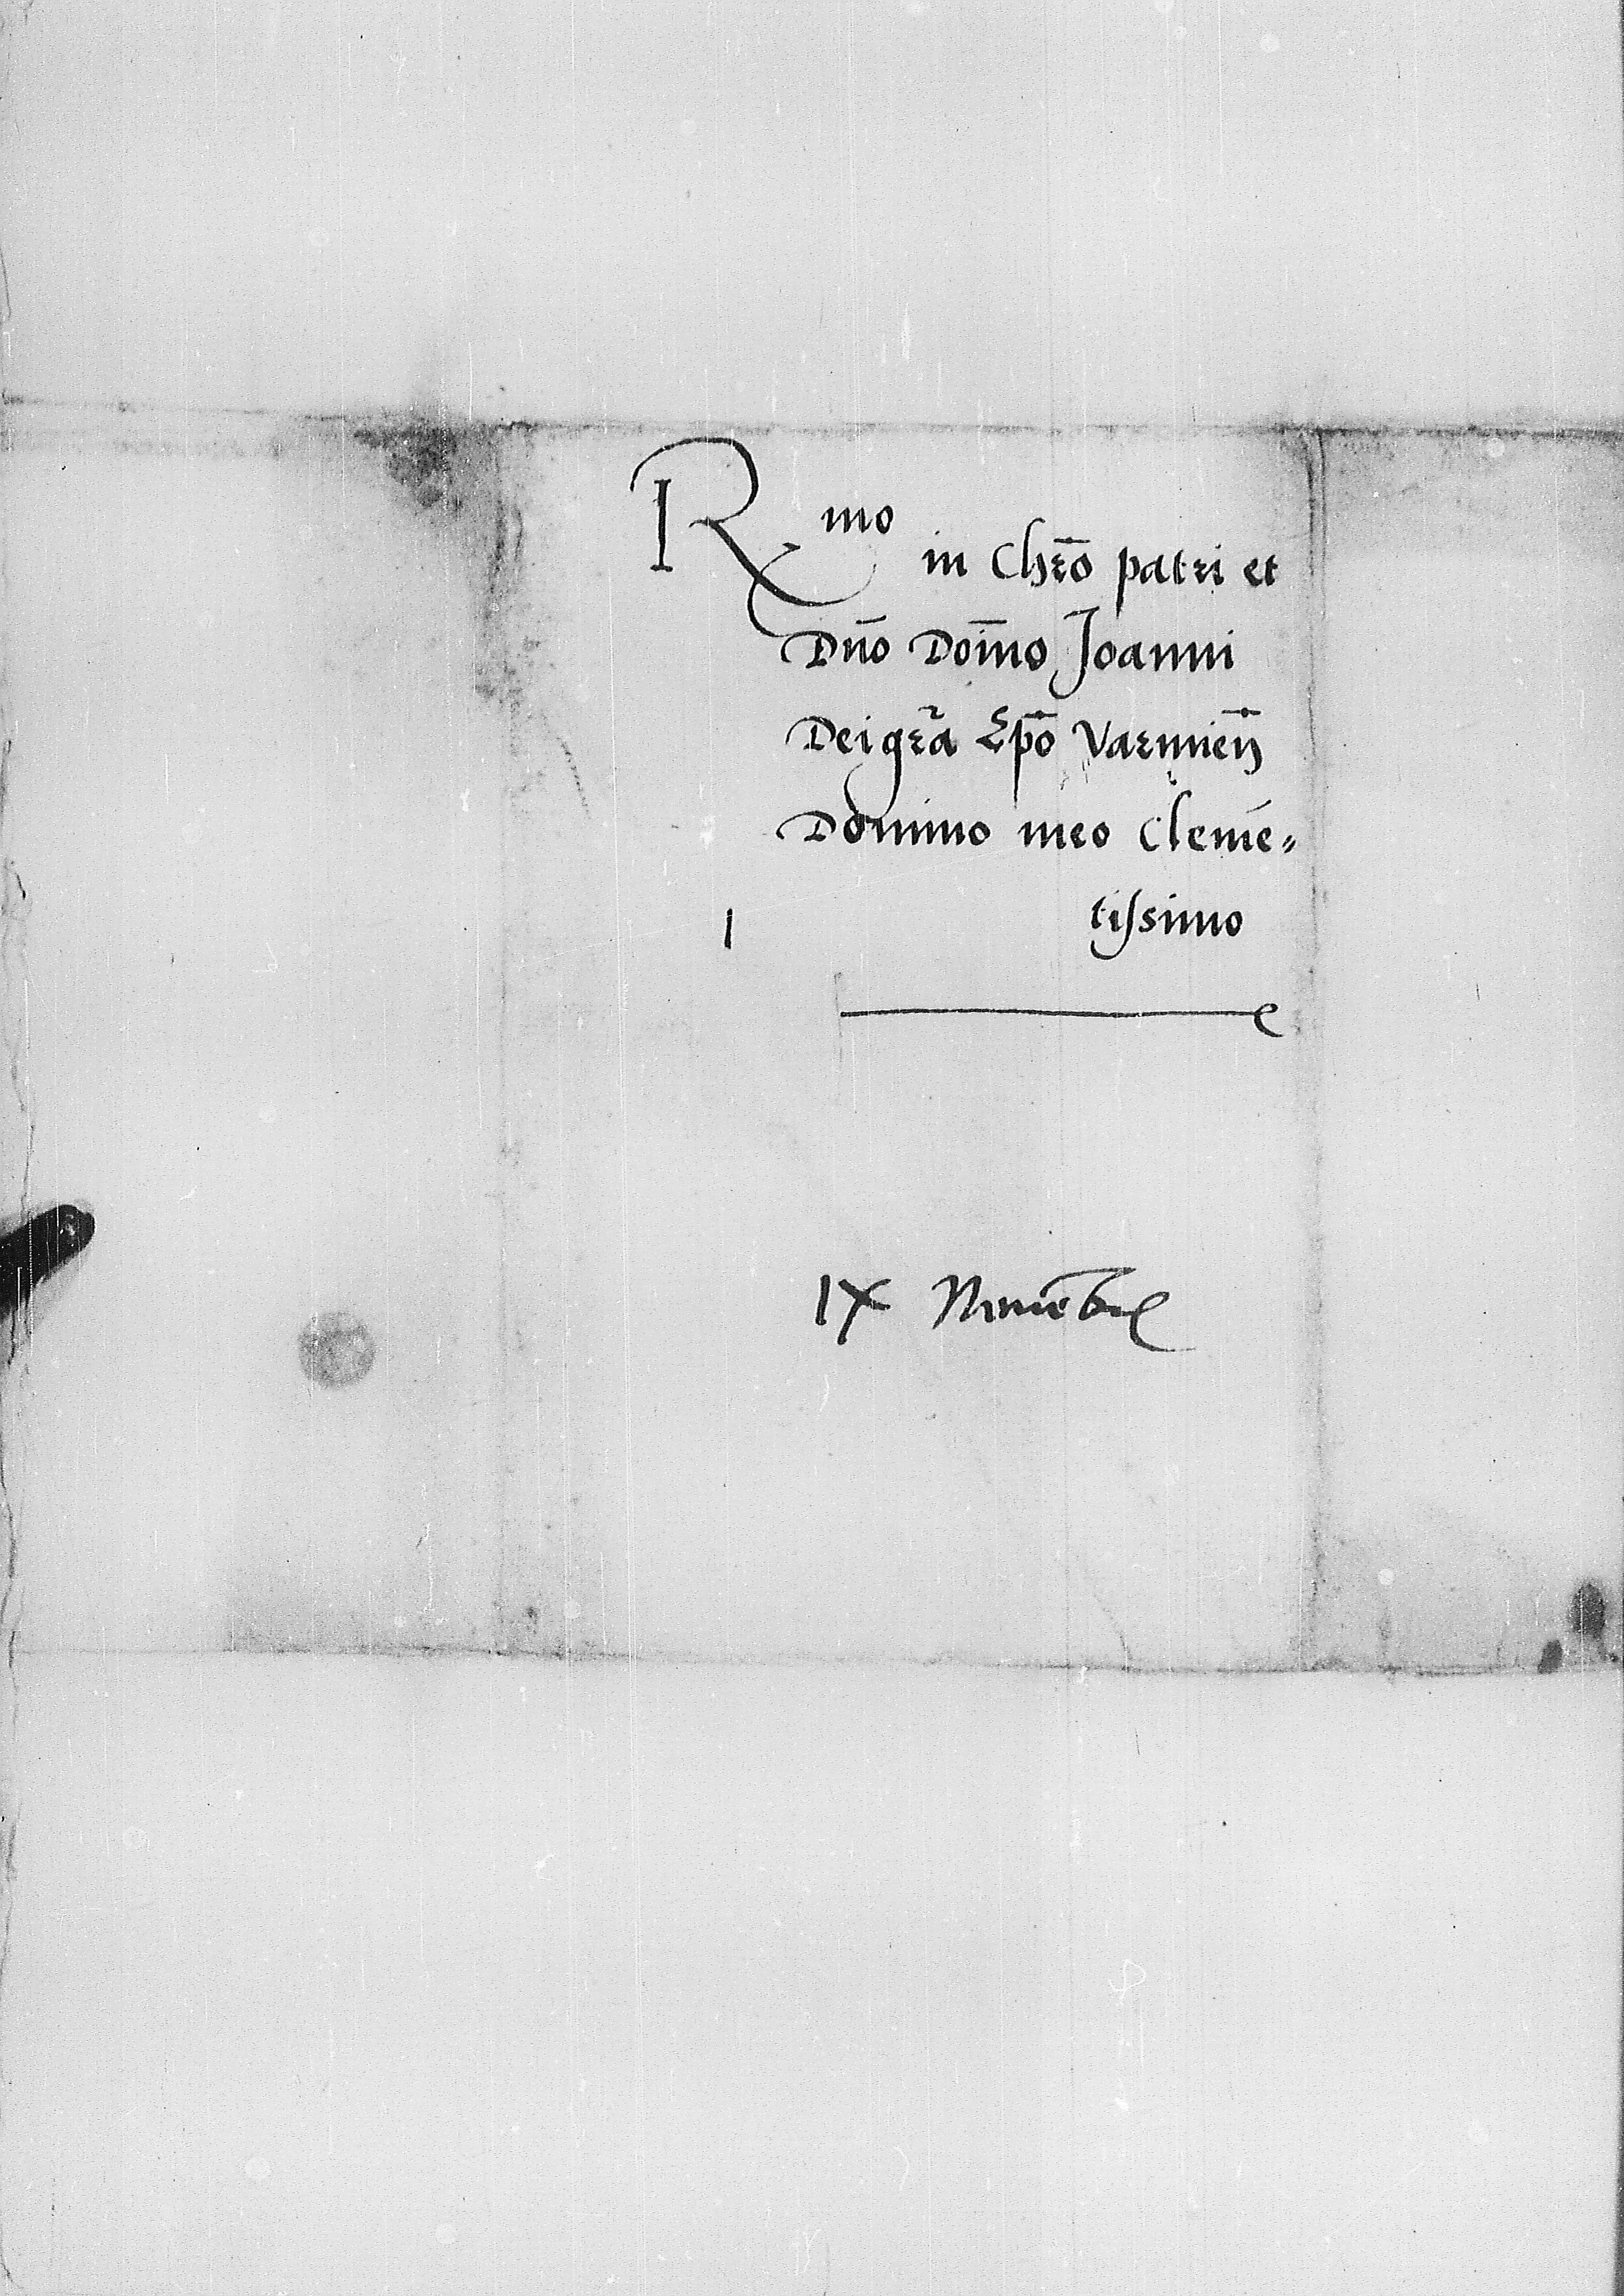 Rmo in Chro᷒ patri et
Dn̄o Doīno Joanni
Dei gr̄a Ep̄o Varmień
Domino meo Clemē⸗
tissimo
IX Nouēbr